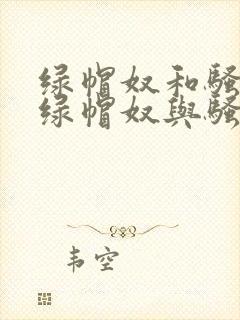 绿帽奴和骚
绿帽奴與骚
韦空